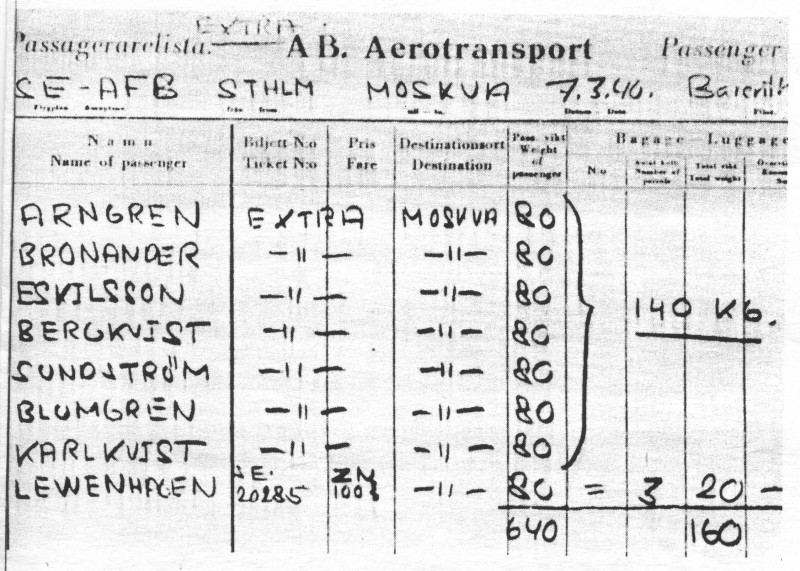 EXTRA
Passagerarelista. A B. Aerotransport Passenger
SE-AFB STHLM MOSKVA 7.3.40.
från from till to Datum Date
Namn Biljett N:o Pris Destinationsort Pass. vikt Bagage Luggage
Name of passenger Ticket N:o Fare Destination Weight of passenger N:o Antal kolli Number of parcels Total vikt Total weight
ARNGREN EXTRA MOSKVA 80
BRONANDER -"- -"- 80
ESKILSSON -"- -"- 80
BERGKVIST -"- -"- 80 140 KG.
SUNDSTRÖM -"- -"- 80
BLUMGREN -"- -"- 80
KARLKVIST -"- -"- 80
LEWENHAGEN SE. 20285 100 -"- 80 = 3 20 -
640 160